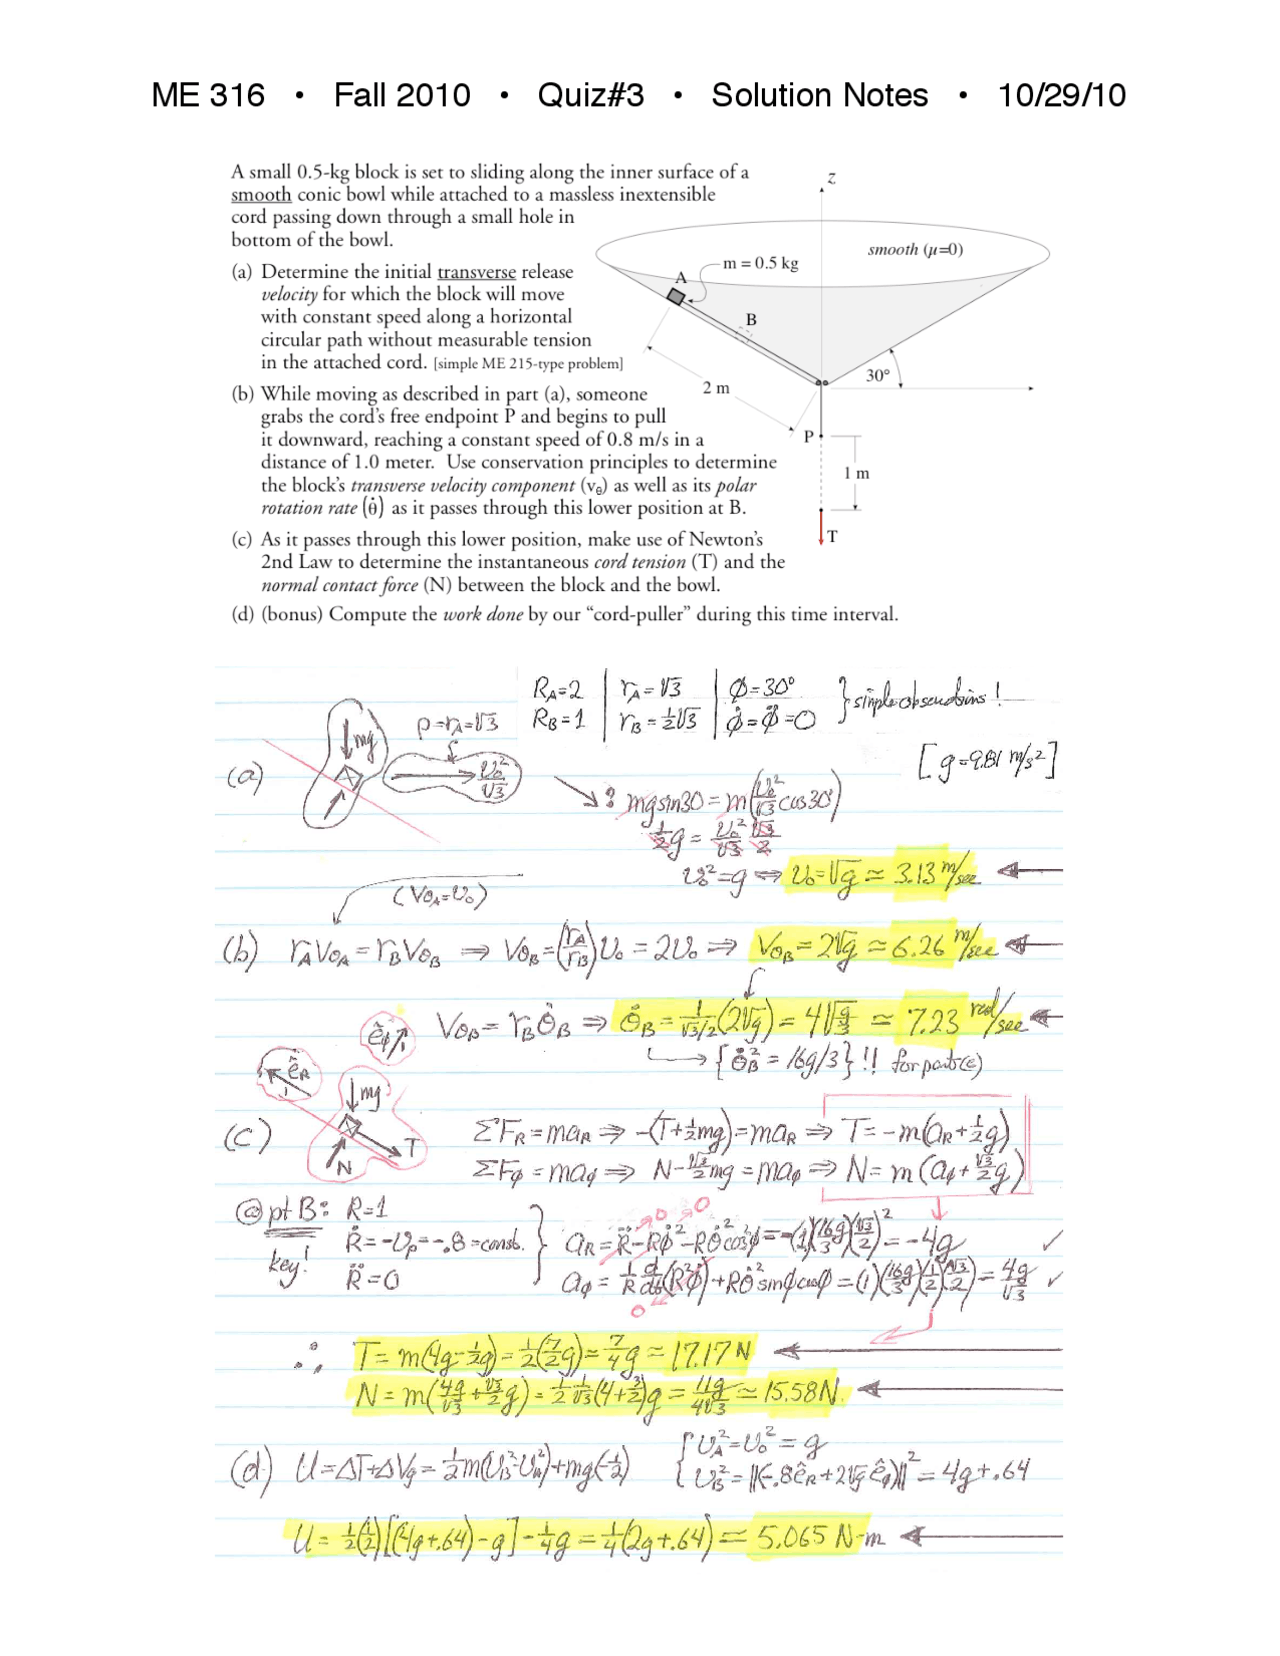 ME 316 • Fall 2010 • Quiz#3 • Solution Notes • 10/29/10
A small 0.5-kg block is set to sliding along the inner surface of a
smooth conic bowl while attached to a massless inextensible
cord passing down through a small hole in
bottom of the bowl.
(a) Determine the initial transverse release
velocity for which the block will move
with constant speed along a horizontal
circular path without measurable tension
in the attached cord. [simple ME 215-type problem]
(b) While moving as described in part (a), someone
grabs the cord's free endpoint P and begins to pull
it downward, reaching a constant speed of 0.8 m/s in a
distance of 1.0 meter. Use conservation principles to determine
the block's transverse velocity component (vθ) as well as its polar
rotation rate (θ̇) as it passes through this lower position at B.
(c) As it passes through this lower position, make use of Newton's
2nd Law to determine the instantaneous cord tension (T) and the
normal contact force (N) between the block and the bowl.
(d) (bonus) Compute the work done by our “cord-puller” during this time interval.
z
smooth (μ=0)
m = 0.5 kg
A
B
30°
2 m
P
1 m
T
R_A=2 | r_A=√3 | φ=30°
R_B=1 | r_B=½√3 | φ̇=φ̈=0
} simple observations!
[g=9.81 m/s²]
(a)
mg
ρ=r_A=√3
v₀²/√3
mg sin30 = m(v₀²/√3 cos30°)
½g = v₀²/√3 √3/2
v₀²=g ⇔ v₀=√g ≃ 3.13 m/sec
(V_θA=v₀)
(b) r_A V_θA = r_B V_θB ⇒ V_θB=(r_A/r_B)v₀ = 2v₀ ⇒ V_θB=2√g ≃ 6.26 m/sec
V_θB = r_B θ̇_B ⇒ θ̇_B = 1/(√3/2)(2√g) = 4√(g/3) ≃ 7.23 rad/sec
{θ̇_B² = 16g/3}!! for part(c)
ê_φ
ê_R
mg
(c)
T
N
ΣF_R = ma_R ⇒ -(T+½mg)=ma_R ⇒ T=-m(a_R+½g)
ΣF_φ = ma_φ ⇒ N-√3/2 mg = ma_φ ⇒ N=m(a_φ+√3/2 g)
@ pt B: R=1
key!
Ṙ=-v_p=-.8=const.
R̈=0
a_R = R̈-Rφ̇²-Rθ̇²cos²φ = -(1)(16g/3)(√3/2)² = -4g ✓
a_φ = 1/R d/dt(R²φ̇)+Rθ̇² sinφ cosφ = (1)(16g/3)(1/2)(√3/2) = 4g/√3 ✓
0 0
0
∴ T= m(4g-½g)=½(7/2 g)=7/4 g ≃ 17.17 N
N = m(4g/√3+√3/2 g) = ½ 1/√3(4+3/2)g = 11g/4√3 ≃ 15.58 N.
(d) U=ΔT+ΔV_g= ½m(v_B²-v_A²)+mg(-½)
{ v_A²=v₀²=g
v_B²=‖-.8ê_R+2√g ê_θ‖²=4g+.64
U= ½(½)[(4g+.64)-g]-¼g=¼(2g+.64) ≃ 5.065 N-m